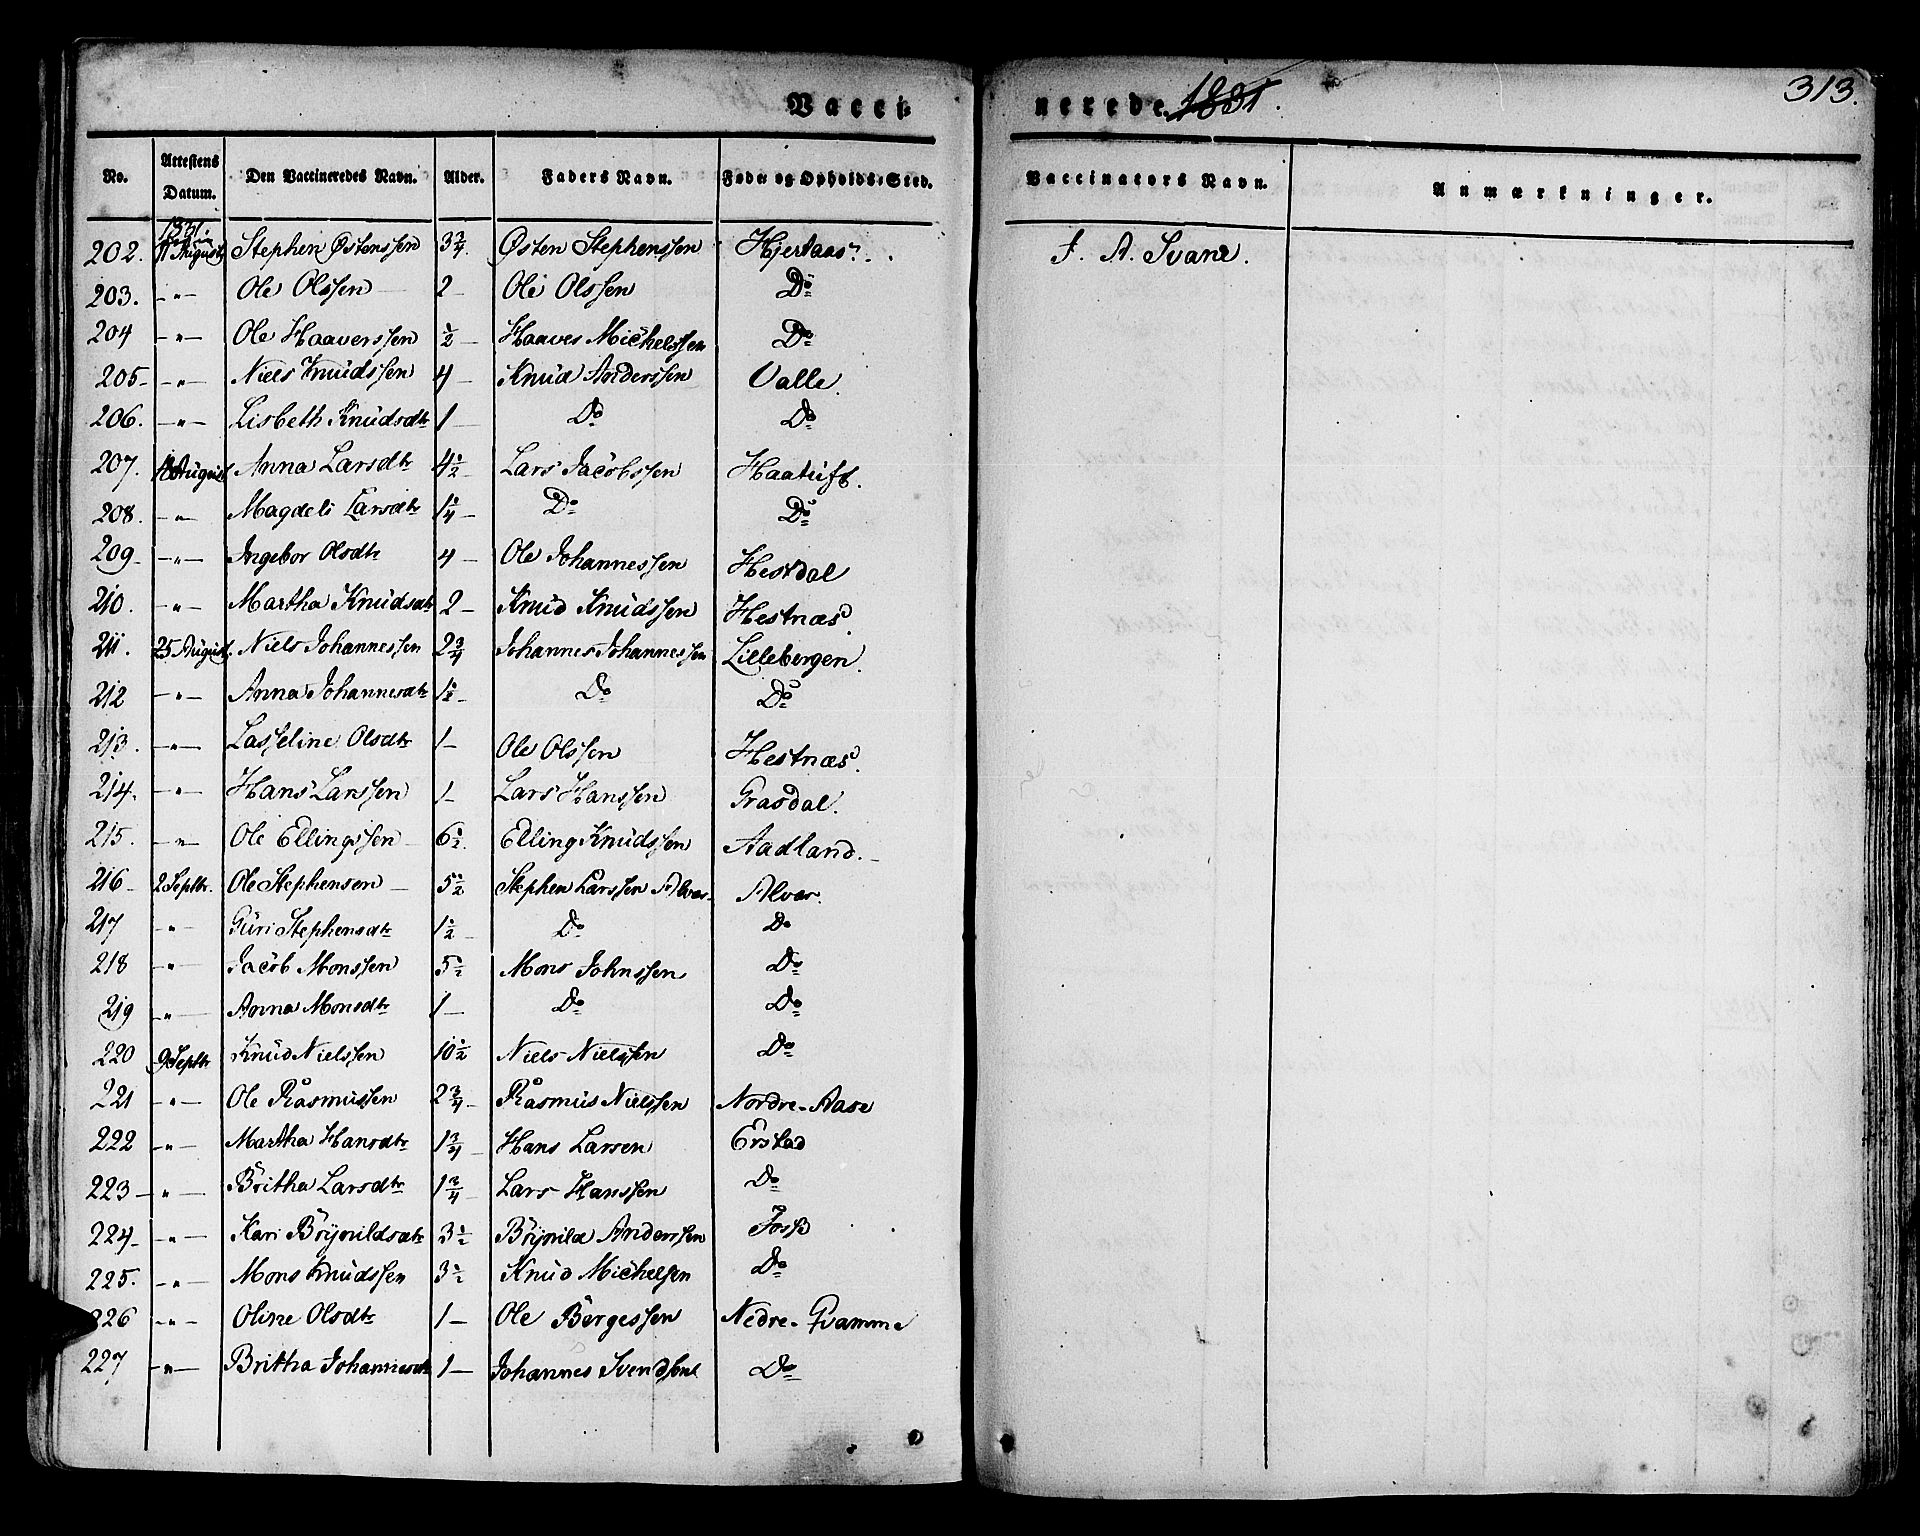 Vacci-
nerede 1831.
313.
No. Attestens Datum. Den Vaccineredes Navn. Alder. Faders Navn. Føde- og Opholds-Sted. Vaccinators Navn. Anmærkninger.
1831.
202. 11 August Stephen Østenssen 3 3/4. Østen Stephenssen Hjertaas. F. A. Svane.
203. -"- Ole Olssen 2 - Ole Olssen Do
204 -"- Ole Haaverssen 1/2 - Haaver Michelssen Do
205- -"- Niels Knudssen 4 - Knud Anderssen Valle.
206. -"- Lisbeth Knudsdtr 1 - Do Do
207. August Anna Larsdtr 4 1/2 Lars Jacobssen Haatuft.
208. -"- Magdeli Larsdtr 1 1/4 - Do Do
209- -"- Ingebor Olsdtr 4 - Ole Johannessen Hestdal
210. -"- Martha Knudsdtr 2 - Knud Knudssen Hestnæs
211. 25 August. Niels Johannessen 2 3/4 Johannes Johannessen Lillebergen.
212 -"- Anna Johannesdtr 1 1/2 - Do Do
213. -"- Lasseline Olsdtr 1 - Ole Olssen Hestnæs.
214. -"- Hans Larssen 1 - Lars Hanssen Grasdal.
215. -"- Ole Ellingssen 6 1/2. Elling Knudssen Aadland.-
216- 2 Septbr. Ole Stephensen - 5 1/2 Stephen Larssen Alver- Alver.
217 -"- Guri Stephensdtr 1 1/2 - Do Do
218 -"- Jacob Monssen 5 1/2 - Mons Johnssen Do
219 -"- Anna Monsdtr 1 - Do Do
220 9 Septbr Knud Nielssen 10 1/2 Niels Nielssen Do
221 -"- Ole Rasmussen 2 3/4 - Rasmus Nielssen Nordre-Aase
222 -"- Martha Hansdtr 1 3/4 - Hans Larsen Erstad
223 - -"- Britha Larsdtr 1 3/4 - Lars Hanssen Do
224- -"- Kari Brynildsdtr 3 1/2 Brynild Anderssen Foss
225. -"- Mons Knudssen 3 1/2 Knud Michelsen Do
226 -"- Oline Olsdtr 1 - Ole Børgessen Nedre-Qvamme
227 -"- Britha Johannesdtr 1 - Johannes Svendsen Do